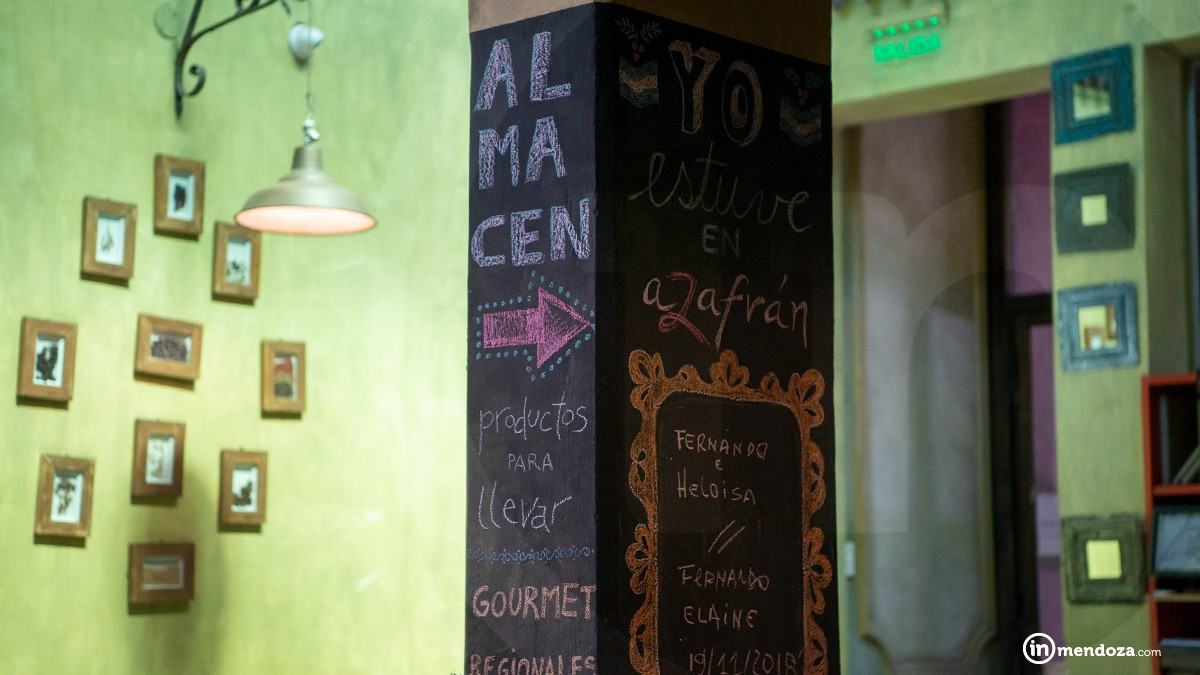 AL
MA
CEN
productos
PARA
llevar
GOURMET
REGIONALES
YO
estuve
EN
azafrán
FERNANDO
E
HELOISA
//
FERNANDO
ELAINE
19/11/2018
SALIDA
inmendoza.com